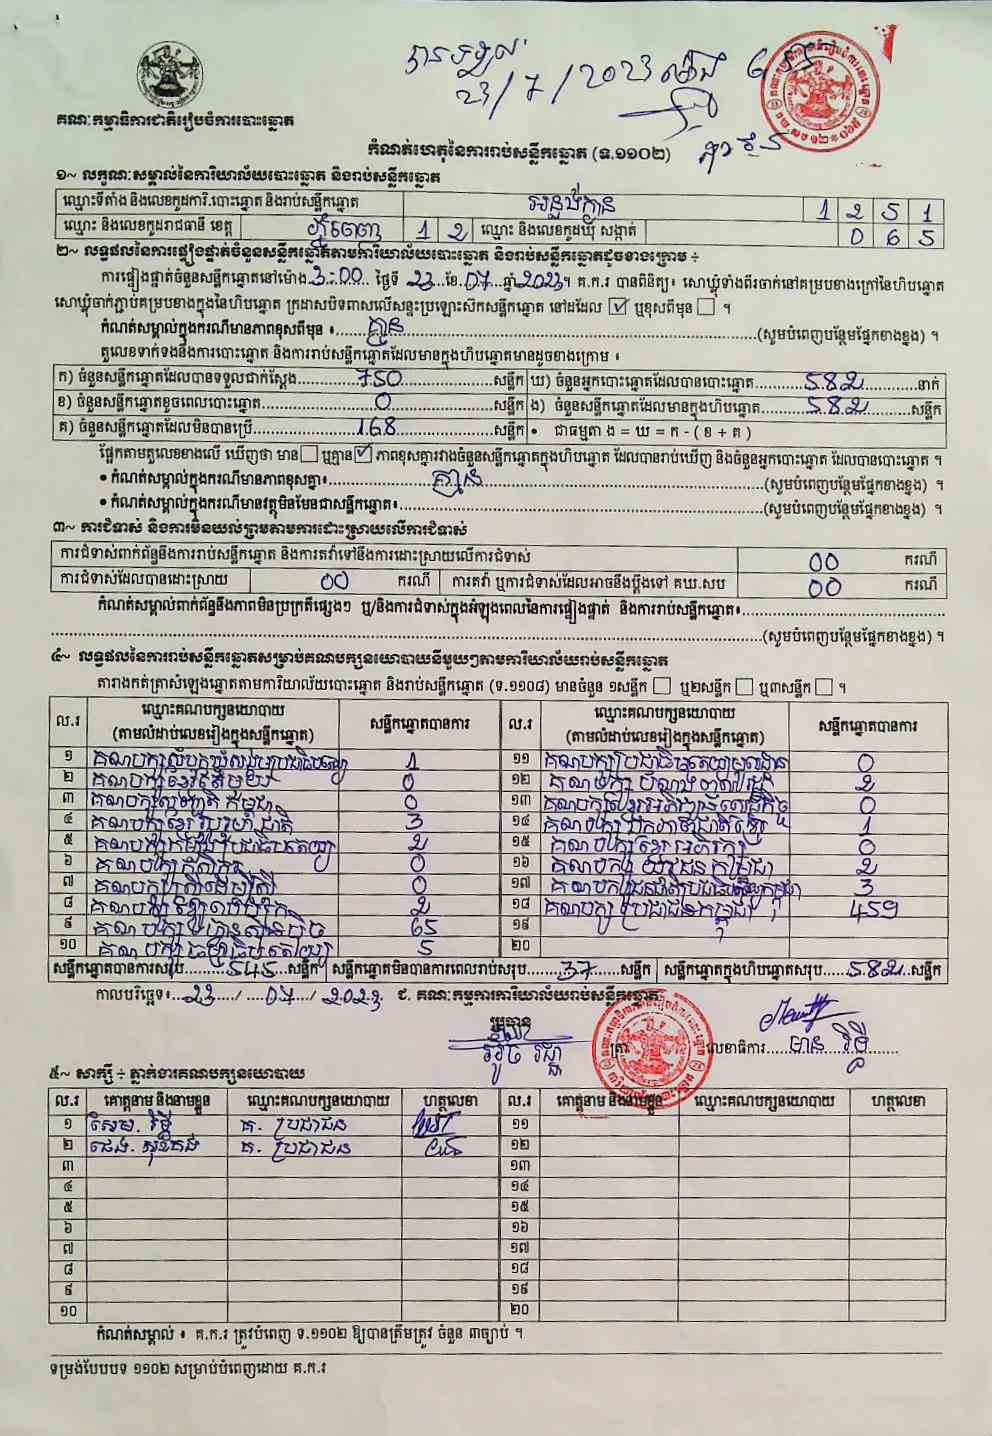 បានទទួល
23/7/2023 ម៉ោង
គណៈកម្មាធិការជាតិរៀបចំការបោះឆ្នោត
កំណត់ហេតុនៃការរាប់សន្លឹកឆ្នោត (ទ.១១០២)
១~ លក្ខណៈសម្គាល់នៃការិយាល័យបោះឆ្នោត និងរាប់សន្លឹកឆ្នោត
ឈ្មោះទីតាំង និងលេខកូដការិ.បោះឆ្នោត និងរាប់សន្លឹកឆ្នោត 1 2 5 1
ឈ្មោះ និងលេខកូដរាជធានី ខេត្ត ភ្នំពេញ 1 2 ឈ្មោះ និងលេខកូដឃុំ សង្កាត់ 0 6 5
២~ លទ្ធផលនៃការផ្ទៀងផ្ទាត់ចំនួនសន្លឹកឆ្នោតតាមការិយាល័យបោះឆ្នោត និងរាប់សន្លឹកឆ្នោតដូចខាងក្រោម ÷
ការផ្ទៀងផ្ទាត់ចំនួនសន្លឹកឆ្នោតនៅម៉ោង 3:00 ថ្ងៃទី 23 ខែ 07 ឆ្នាំ 2023។ គ.ក.រ បានពិនិត្យ៖ សោឃ្លុំទាំងពីរចាក់នៅគម្របខាងក្រៅនៃហិបឆ្នោត
សោឃ្លុំចាក់ភ្ជាប់គម្របខាងក្នុងនៃហិបឆ្នោត ក្រដាសបិទពាសលើសន្ទះប្រឡោះសិកសន្លឹកឆ្នោត នៅដដែល ☑ ឬខុសពីមុន ☐ ។
កំណត់សម្គាល់ក្នុងករណីមានភាពខុសពីមុន ៖ គ្មាន (សូមបំពេញបន្ថែមផ្នែកខាងខ្នង) ។
តួលេខទាក់ទងនឹងការបោះឆ្នោត និងការរាប់សន្លឹកឆ្នោតដែលមានក្នុងហិបឆ្នោតមានដូចខាងក្រោម ៖
ក) ចំនួនសន្លឹកឆ្នោតដែលបានទទួលជាក់ស្តែង 750 សន្លឹក ឃ) ចំនួនអ្នកបោះឆ្នោតដែលបានបោះឆ្នោត 582 នាក់
ខ) ចំនួនសន្លឹកឆ្នោតខូចពេលបោះឆ្នោត 0 សន្លឹក ង) ចំនួនសន្លឹកឆ្នោតដែលមានក្នុងហិបឆ្នោត 582 សន្លឹក
គ) ចំនួនសន្លឹកឆ្នោតដែលមិនបានប្រើ 168 សន្លឹក • ជាធម្មតា ង = ឃ = ក - ( ខ + គ )
ផ្អែកតាមតួលេខខាងលើ ឃើញថា មាន ☐ ឬគ្មាន ☑ ភាពខុសគ្នារវាងចំនួនសន្លឹកឆ្នោតក្នុងហិបឆ្នោត ដែលបានរាប់ឃើញ និងចំនួនអ្នកបោះឆ្នោត ដែលបានបោះឆ្នោត ។
• កំណត់សម្គាល់ក្នុងករណីមានភាពខុសគ្នា៖ គ្មាន (សូមបំពេញបន្ថែមផ្នែកខាងខ្នង) ។
• កំណត់សម្គាល់ក្នុងករណីមានវត្ថុមិនមែនជាសន្លឹកឆ្នោត៖ (សូមបំពេញបន្ថែមផ្នែកខាងខ្នង) ។
៣~ ការជំទាស់ និងការមិនយល់ព្រមតាមការដោះស្រាយលើការជំទាស់
ការជំទាស់ពាក់ព័ន្ធនឹងការរាប់សន្លឹកឆ្នោត និងការតវ៉ាទៅនឹងការដោះស្រាយលើការជំទាស់ 00 ករណី
ការជំទាស់ដែលបានដោះស្រាយ 00 ករណី ការតវ៉ា ឬការជំទាស់ដែលអាចនឹងប្តឹងទៅ គឃ.សប 00 ករណី
កំណត់សម្គាល់ពាក់ព័ន្ធនឹងភាពមិនប្រក្រតីផ្សេងៗ ឬ/និងការជំទាស់ក្នុងអំឡុងពេលនៃការផ្ទៀងផ្ទាត់ និងការរាប់សន្លឹកឆ្នោត៖
(សូមបំពេញបន្ថែមផ្នែកខាងខ្នង) ។
៤~ លទ្ធផលនៃការរាប់សន្លឹកឆ្នោតសម្រាប់គណបក្សនយោបាយនីមួយៗតាមការិយាល័យរាប់សន្លឹកឆ្នោត
តារាងកត់ត្រាសំឡេងឆ្នោតតាមការិយាល័យបោះឆ្នោត និងរាប់សន្លឹកឆ្នោត (ទ.១១០៨) មានចំនួន ១សន្លឹក ☐ ឬ២សន្លឹក ☐ ឬ៣សន្លឹក ☐ ។
ល.រ ឈ្មោះគណបក្សនយោបាយ (តាមលំដាប់លេខរៀងក្នុងសន្លឹកឆ្នោត) សន្លឹកឆ្នោតបានការ ល.រ ឈ្មោះគណបក្សនយោបាយ (តាមលំដាប់លេខរៀងក្នុងសន្លឹកឆ្នោត) សន្លឹកឆ្នោតបានការ
១ គណបក្សសំបុកឃ្មុំសង្គមប្រជាធិបតេយ្យ 1 ១១ 0
២ គណបក្សខ្មែរតែមួយ 0 ១២ 2
៣ 0 ១៣ គណបក្សខ្មែរអភិវឌ្ឍន៍សេដ្ឋកិច្ច 0
៤ គណបក្សខ្មែររួបរួមជាតិ 3 ១៤ គណបក្សឯកភាពជាតិខ្មែរ 1
៥ គណបក្សកម្លាំងប្រជាធិបតេយ្យ 2 ១៥ គណបក្សខ្មែរអភិរក្ស 0
៦ គណបក្សកសិករ 0 ១៦ គណបក្សយុវជនកម្ពុជា 2
៧ គណបក្សស្រ្តីដើម្បីស្ត្រី 0 ១៧ គណបក្សជនជាតិដើមប្រជាធិបតេយ្យកម្ពុជា 3
៨ គណបក្សខ្មែរឈប់ក្រ 2 ១៨ គណបក្សប្រជាជនកម្ពុជា 459
៩ គណបក្សហ្វ៊ុនស៊ិនប៉ិច 65 ១៩
១០ គណបក្សធម្មាធិបតេយ្យ 5 ២០
សន្លឹកឆ្នោតបានការសរុប 545 សន្លឹក សន្លឹកឆ្នោតមិនបានការពេលរាប់សរុប 37 សន្លឹក សន្លឹកឆ្នោតក្នុងហិបឆ្នោតសរុប 582 សន្លឹក
កាលបរិច្ឆេទ៖ 23 / 07 / 2023 ជ. គណៈកម្មការការិយាល័យរាប់សន្លឹកឆ្នោត
ប្រធាន ត្រា លេខាធិការ មាន រិទ្ធី
៥~ សាក្សី ÷ ភ្នាក់ងារគណបក្សនយោបាយ
ល.រ គោត្តនាម និងនាមខ្លួន ឈ្មោះគណបក្សនយោបាយ ហត្ថលេខា ល.រ គោត្តនាម និងនាមខ្លួន ឈ្មោះគណបក្សនយោបាយ ហត្ថលេខា
១ សែម. រិទ្ធី គ. ប្រជាជន ១១
២ គ. ប្រជាជន ១២
៣ ១៣
៤ ១៤
៥ ១៥
៦ ១៦
៧ ១៧
៨ ១៨
៩ ១៩
១០ ២០
កំណត់សម្គាល់ ៖ គ.ក.រ ត្រូវបំពេញ ទ.១១០២ ឱ្យបានត្រឹមត្រូវ ចំនួន ៣ច្បាប់ ។
ទម្រង់បែបបទ ១១០២ សម្រាប់បំពេញដោយ គ.ក.រ